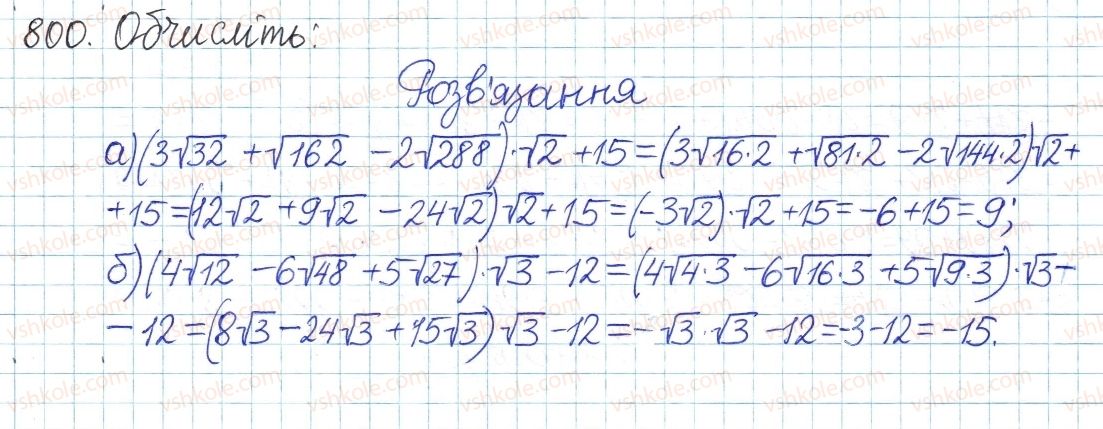 800. Обчисліть:
Розв'язання
а) (3√32 + √162 - 2√288) · √2 + 15 = (3√16·2 + √81·2 - 2√144·2)√2 +
+ 15 = (12√2 + 9√2 - 24√2)√2 + 15 = (-3√2) · √2 + 15 = -6 + 15 = 9;
б) (4√12 - 6√48 + 5√27) · √3 - 12 = (4√4·3 - 6√16·3 + 5√9·3) · √3 -
- 12 = (8√3 - 24√3 + 15√3) √3 - 12 = -√3 · √3 - 12 = -3 - 12 = -15.